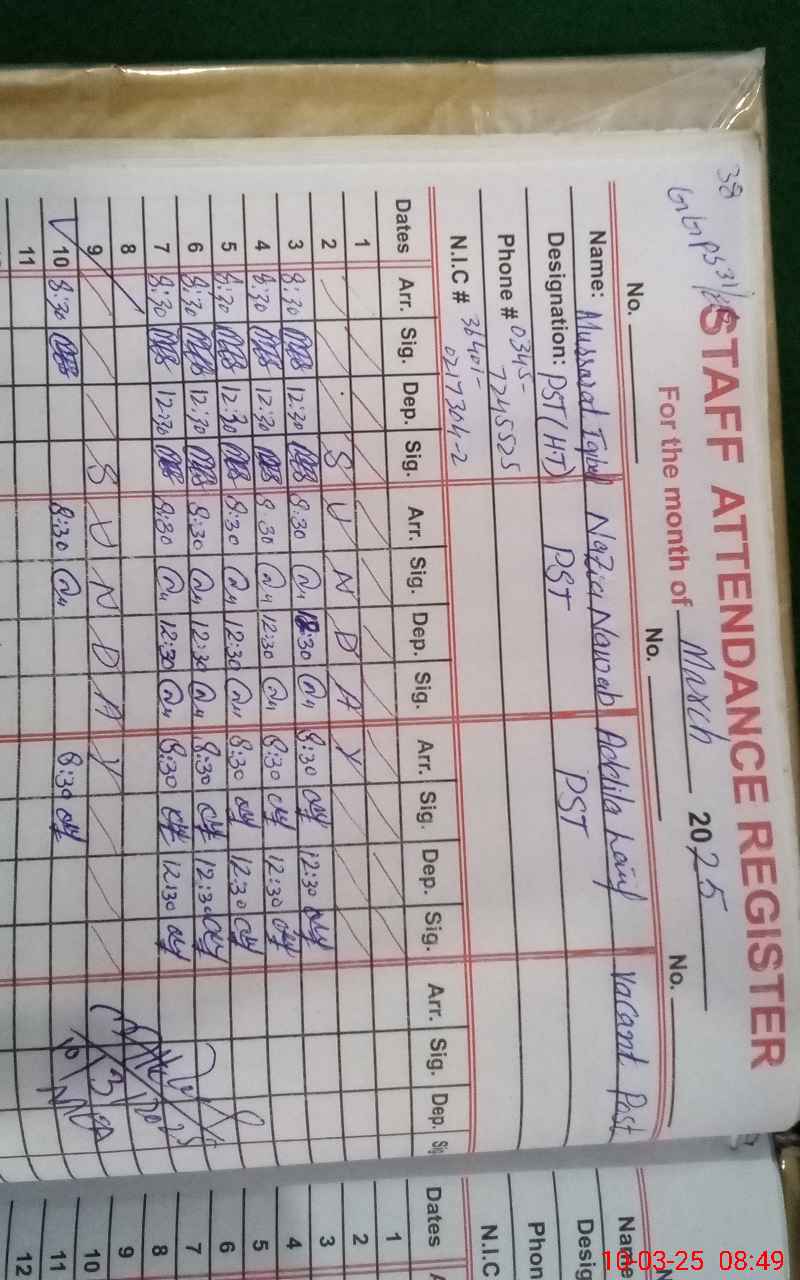 38
GGPS 31/
STAFF ATTENDANCE REGISTER
For the month of March 2025
No. No. No.
Name: Mussarat Iqbal Nazia Nawab Adila Latif Vacant Post
Designation: PST(H.T) PST PST
Phone # 0345-
7245525
N.I.C # 36401-
0217304-2
Dates Arr. Sig. Dep. Sig. Arr. Sig. Dep. Sig. Arr. Sig. Dep. Sig. Arr. Sig. Dep. Sig
1
2 S U N D A Y
3 8:30 12:30 8:30 12:30 8:30 12:30
4 8:30 12:30 8:30 12:30 8:30 12:30
5 8:30 12:30 8:30 12:30 8:30 12:30
6 8:30 12:30 8:30 12:30 8:30 12:30
7 8:30 12:30 8:30 12:30 8:30 12:30
8
9 S U N D A Y
10 8:30 8:30 8:30
11
N
Name
Desig
Phon
N.I.C
Dates A
1
2
3
4
5
6
7
8
9
10
11
12
10-03-25 08:49